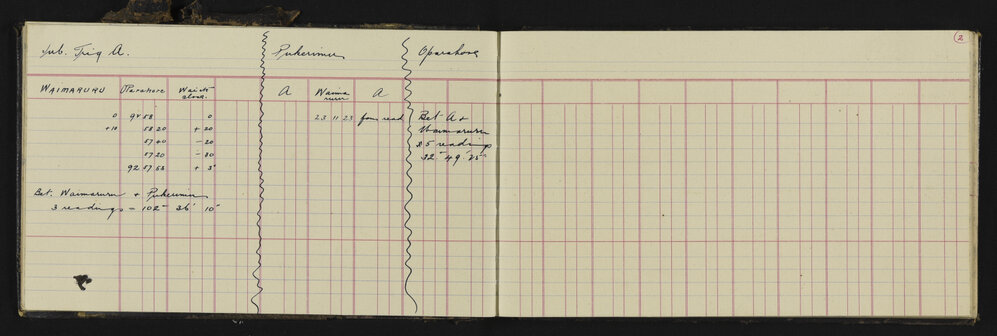 2
Sub. Trig A.
WAIMARURU Oparahore
0 92 58 0
+10 58 20 + 20
57 40 - 20
57 20 - 30
92 57 53 + 3"
Bet. Waimaruru + Pukerimu
3 readings = 102° 36' 10"
Pukerimu
A Waima ruru A
23 11 23 four read
Oparahore
Bet A +
Waimaruru
35 readings
32° 49' 25"